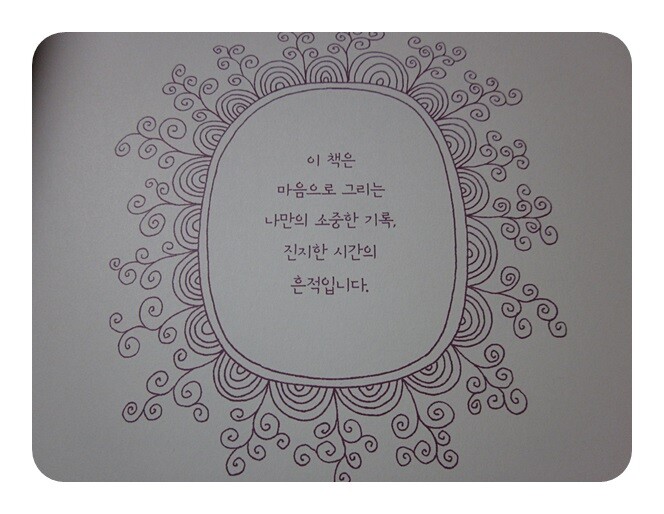 이 책은
마음으로 그리는
나만의 소중한 기록,
진지한 시간의
흔적입니다.